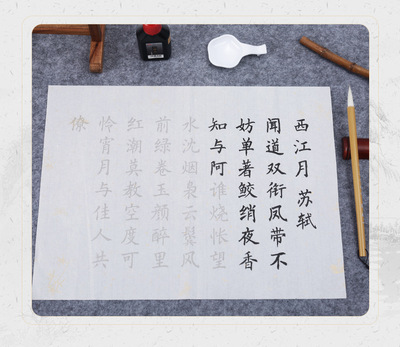 西江月 苏轼
闻道双衔凤带不
妨单著鲛绡夜香
知与阿谁烧怅望
水沈烟袅云鬓风
前绿卷玉颜醉里
红潮莫教空度可
怜宵月与佳人共
僚